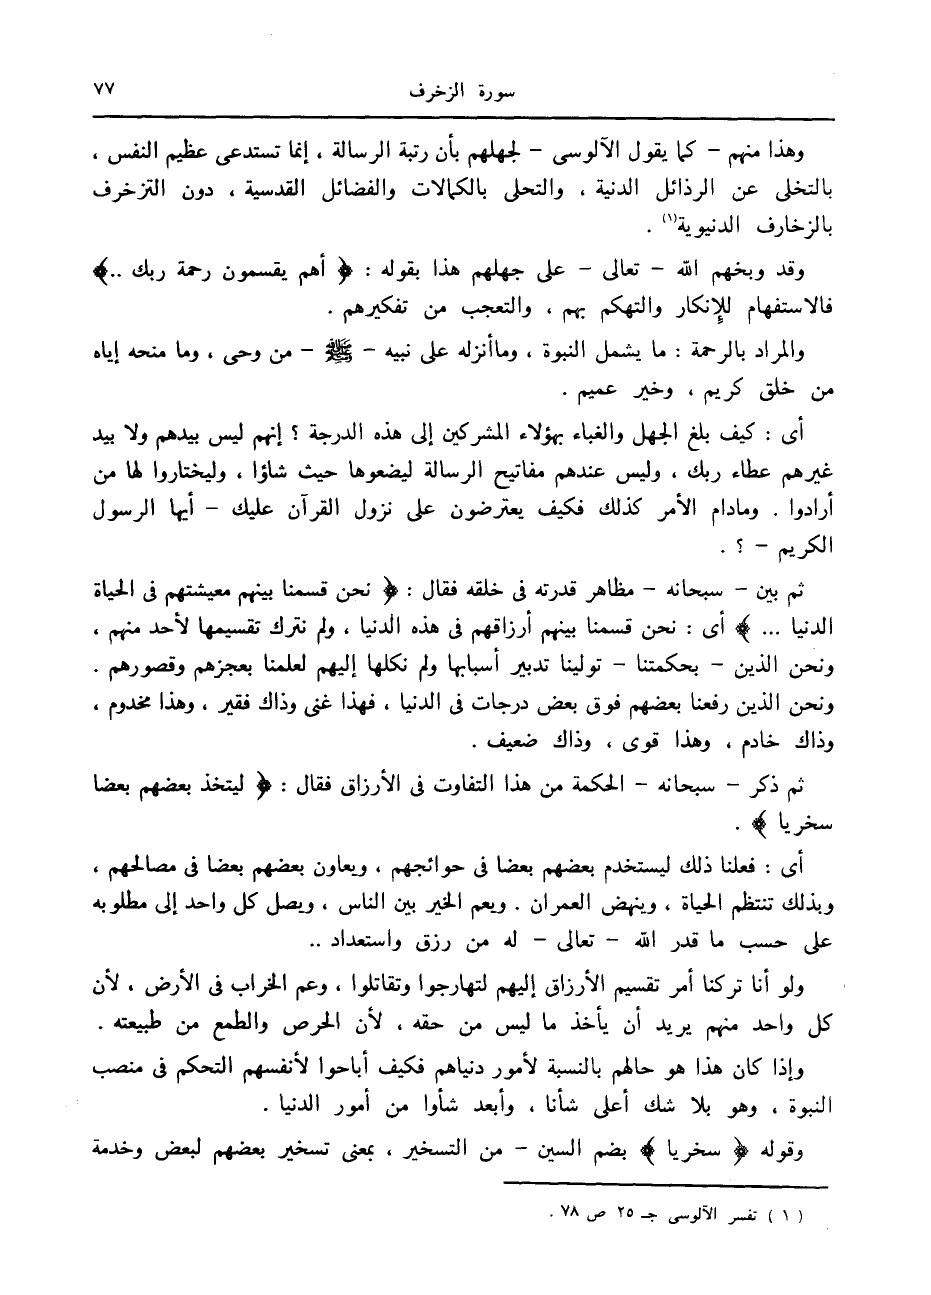 سورة الزخرف ٧٧
وهذا منهم – كما يقول الآلوسى – لجهلهم بأن رتبة الرسالة ، إنما تستدعى عظيم النفس ،
بالتخلى عن الرذائل الدنية ، والتحلى بالكمالات والفضائل القدسية ، دون التزخرف
بالزخارف الدنيوية(١) .
وقد وبخهم الله – تعالى – على جهلهم هذا بقوله : ﴿ أهم يقسمون رحمة ربك ..﴾
فالاستفهام للإنكار والتهكم بهم ، والتعجب من تفكيرهم .
والمراد بالرحمة : ما يشمل النبوة ، وماأنزله على نبيه – ﷺ – من وحى ، وما منحه إياه
من خلق كريم ، وخير عميم .
أى : كيف بلغ الجهل والغباء بهؤلاء المشركين إلى هذه الدرجة ؟ إنهم ليس بيدهم ولا بيد
غيرهم عطاء ربك ، وليس عندهم مفاتيح الرسالة ليضعوها حيث شاؤا ، وليختاروا لها من
أرادوا . ومادام الأمر كذلك فكيف يعترضون على نزول القرآن عليك – أيها الرسول
الكريم – ؟ .
ثم بين – سبحانه – مظاهر قدرته فى خلقه فقال : ﴿ نحن قسمنا بينهم معيشتهم فى الحياة
الدنيا ... ﴾ أى : نحن قسمنا بينهم أرزاقهم فى هذه الدنيا ، ولم نترك تقسيمها لأحد منهم ،
ونحن الذين – بحكمتنا – تولينا تدبير أسبابها ولم نكلها إليهم لعلمنا بعجزهم وقصورهم .
ونحن الذين رفعنا بعضهم فوق بعض درجات فى الدنيا ، فهذا غنى وذاك فقير ، وهذا مخدوم ،
وذاك خادم ، وهذا قوى ، وذاك ضعيف .
ثم ذكر – سبحانه – الحكمة من هذا التفاوت فى الأرزاق فقال : ﴿ ليتخذ بعضهم بعضا
سخريا ﴾ .
أى : فعلنا ذلك ليستخدم بعضهم بعضا فى حوائجهم ، ويعاون بعضهم بعضا فى مصالحهم ،
وبذلك تنتظم الحياة ، وينهض العمران . ويعم الخير بين الناس ، ويصل كل واحد إلى مطلوبه
على حسب ما قدر الله – تعالى – له من رزق واستعداد ..
ولو أنا تركنا أمر تقسيم الأرزاق إليهم لتهارجوا وتقاتلوا ، وعم الخراب فى الأرض ، لأن
كل واحد منهم يريد أن يأخذ ما ليس من حقه ، لأن الحرص والطمع من طبيعته .
وإذا كان هذا هو حالهم بالنسبة لأمور دنياهم فكيف أباحوا لأنفسهم التحكم فى منصب
النبوة ، وهو بلا شك أعلى شأنا ، وأبعد شأوا من أمور الدنيا .
وقوله ﴿ سخريا ﴾ بضم السين – من التسخير ، بمعنى تسخير بعضهم لبعض وخدمة
( ١ ) تفسر الآلوسى جـ ٢٥ ص ٧٨ .